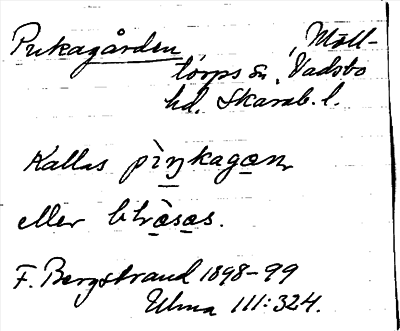 Pukagården, Möll-
torps sn, Vadsbo
hd. Skarab. l.
Kallas
eller
F. Bergstrand 1898-99
Ulma 111:324.